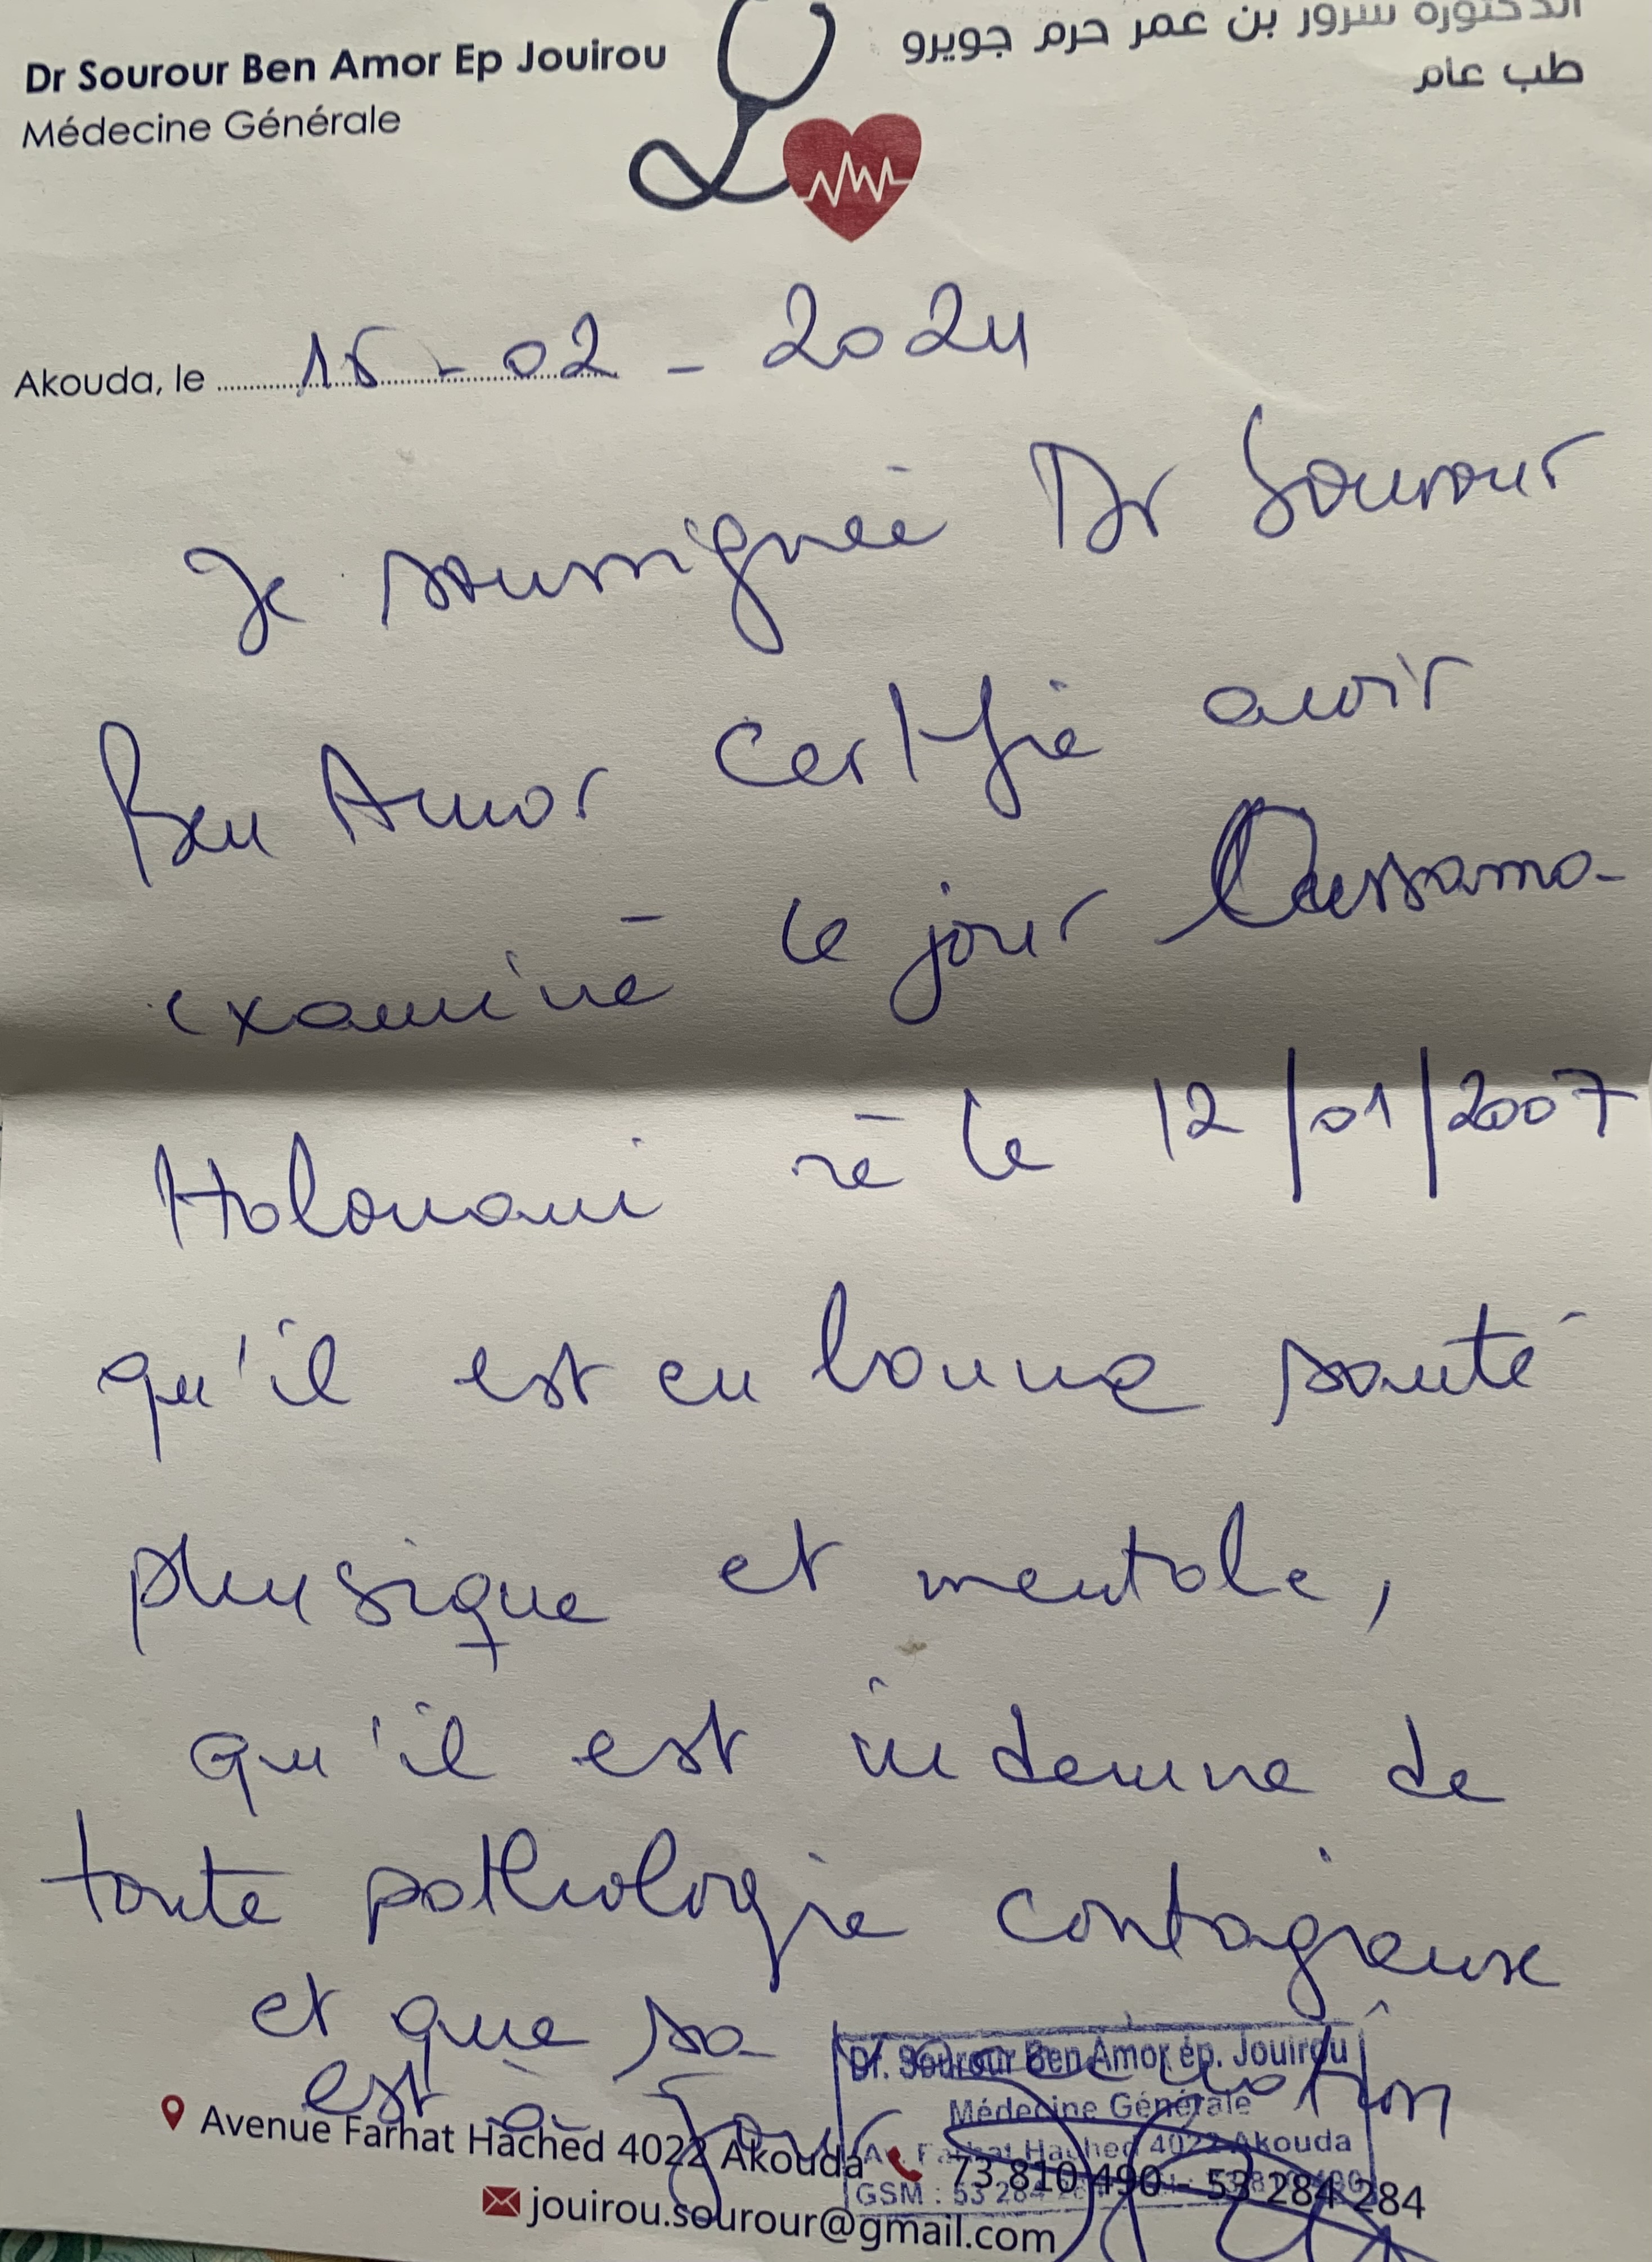 Dr Sourour Ben Amor Ep Jouirou
Médecine Générale
الدكتورة سرور بن عمر حرم جويرو
طب عام
Akouda, le 15-02-2024
Je soussignée Dr Sourour
Ben Amor certifie avoir
examiné ce jour Oussama
Halouani né le 12/01/2007
qu'il est en bonne santé
physique et mentale,
qu'il est indemne de
toute pathologie contagieuse
et que sa vaccination
est à jour
Dr. Sourour Ben Amor ép. Jouirou
Médecine Générale
Av. Farhat Hached 4022 Akouda
GSM : 53 284
Avenue Farhat Hached 4022 Akouda 73 810 490 - 53 284 284
jouirou.sourour@gmail.com